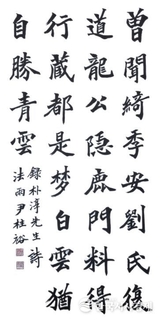 曾聞綺季安劉氏復
道龍公隱鹿門料得
行藏都是梦白雲猶
自勝青雲
錄朴淳先生詩
法雨尹柱裕